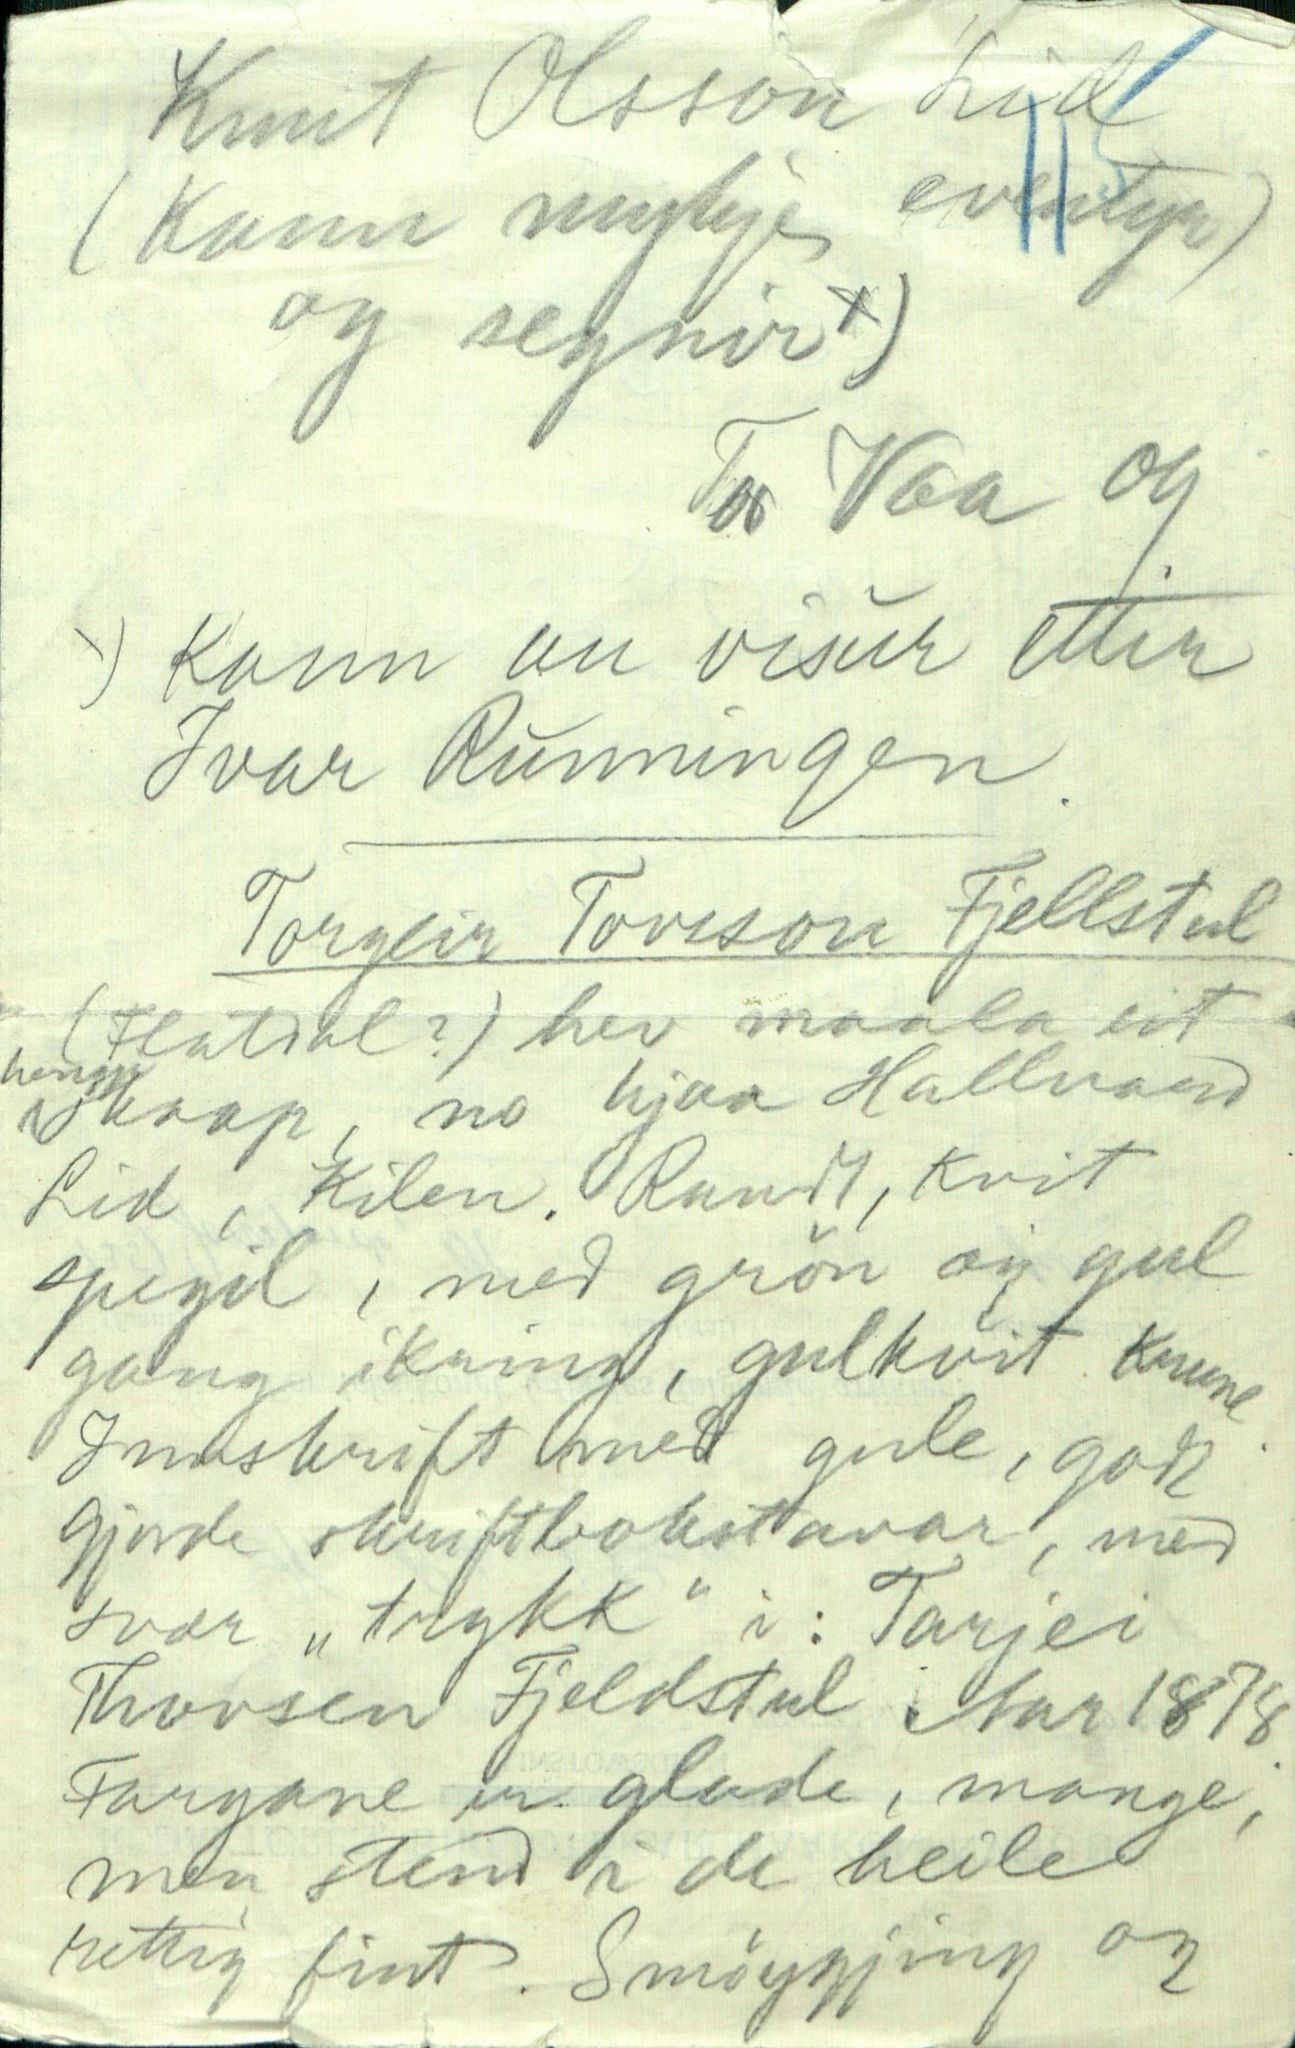 Knut Olsson Lid
(Kann mykje eventyr)
og segnir x)
Tor Vaa og
x) Kann au visur ettir
Ivar Runningen.
Torgeir Tovsson Fjellstul
(Flatdal?) hev maala eit
heng
skaap, no hjaa Hallvard
Lid, Kilen. Raudt, kvit
spegil, med grön og gul
gang ikring, gulkvit krune
Innskrift med gule, godt
gjorde skriftbokstavar, med
svar „trykk" i: Tarjei
Thovsen Fjeldstul Aar 1878
Fargane er glade, mange,
men stend i de heile
rettig fint. Smöygjing og